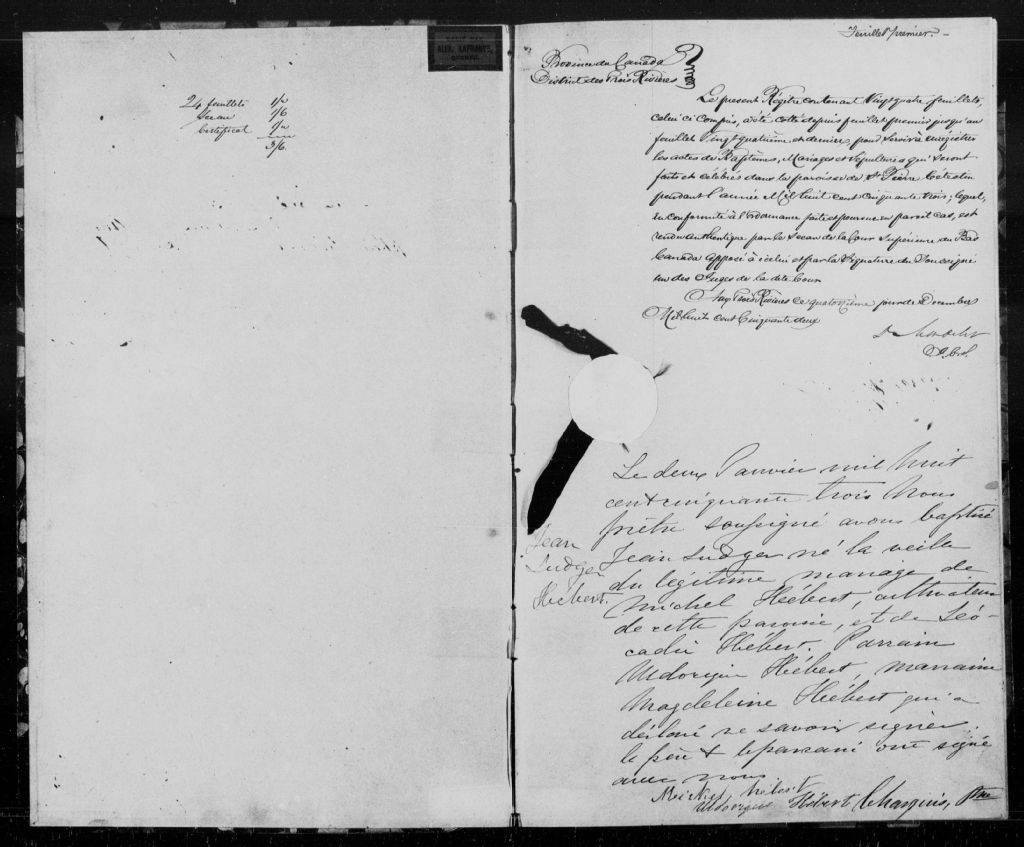 ALEX. LAFRANCE,
QUEBEC.
24 feuillets 1/0
Sceau 1/6
Certificat 1/0
3/6
Feuillet premier.
Province du Canada
District des Trois Rivières
Le present Régître contenant Vingt quatre feuillets,
celui ci Compris, a été cotté depuis feuillet premier jusqu'au
feuillet Vingt quatrième et dernier, pour servir à enregistrer
les actes de Baptêmes, Mariages et Sépultures qui seront
faits et célébrés dans la paroisse de St Pierre Célestin
pendant l'année Mil huit cent cinquante trois; lequel,
en conformité à l'ordonnance faite et pourvue en pareil cas, est
rendu authentique par le Sceau de la Cour Supérieure du Bas
Canada apposé à icelui et par la Signature du Soussigné
un des Juges de la dite Cour
Aux Trois Rivières ce quatorzième jour de Décembre
Mil huit cent Cinquante deux
D. Mondelet
J. C. S.
Jean
Ludger
Hébert.
Le deux Janvier mil huit
cent cinquante trois Nous
prêtre soussigné avons baptisé
Jean Ludger né la veille
du légitime mariage de
Michel Hébert, cultivateur
de cette paroisse, et de Léo-
cadie Hébert. Parrain
Udorique Hébert, marraine
Magdeleine Hébert qui a
déclaré ne savoir signer.
le père & le parrain ont signé
avec nous
Michel hébert
Udorique Hébert Ptre